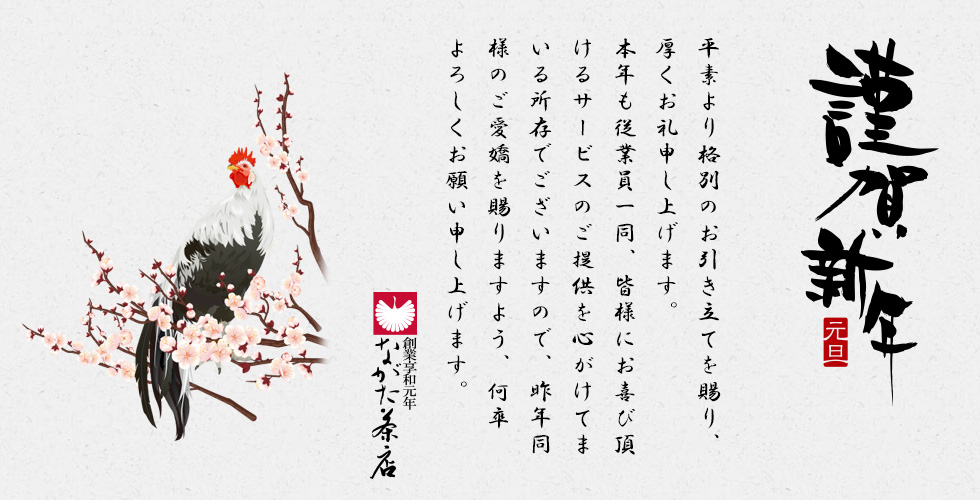 謹賀新年
元旦
平素より格別のお引き立てを賜り、
厚くお礼申し上げます。
本年も従業員一同、皆様にお喜び頂
けるサービスのご提供を心がけてま
いる所存でございますので、昨年同
様のご愛嬌を賜りますよう、何卒
よろしくお願い申し上げます。
創業享和元年
ながた茶店